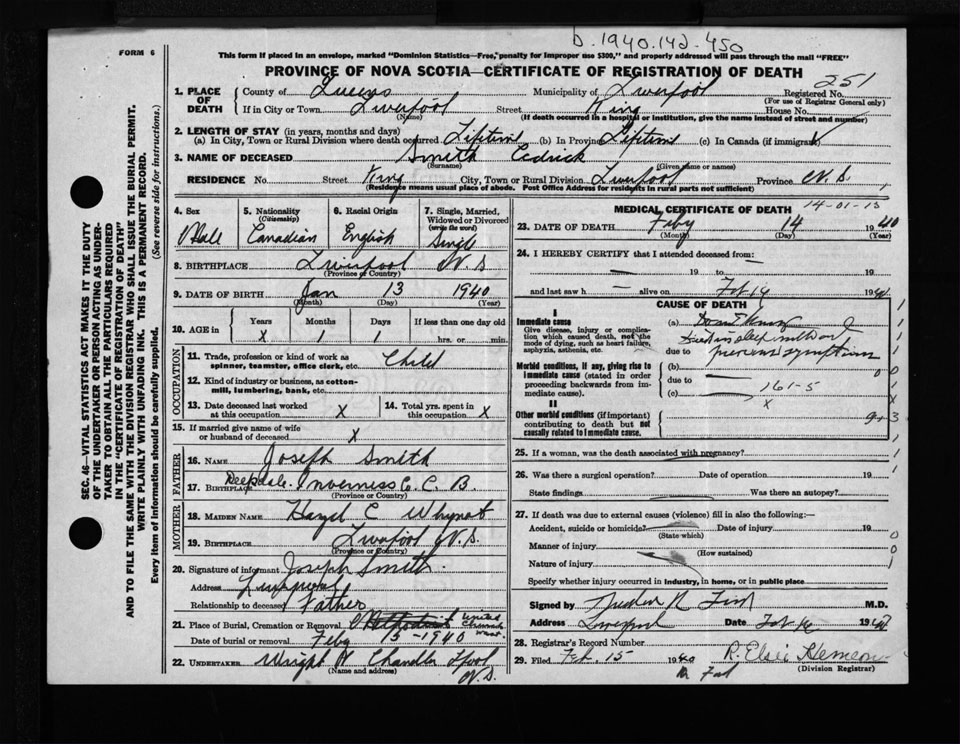 b. 1940.142-450
FORM 6
This form if placed in an envelope, marked "Dominion Statistics—Free, penalty for improper use $300," and properly addressed will pass through the mail "FREE"
PROVINCE OF NOVA SCOTIA—CERTIFICATE OF REGISTRATION OF DEATH
251
1. PLACE OF DEATH County of Queens Municipality of Liverpool Registered No.
(For use of Registrar General only)
If in City or Town Liverpool Street King House No.
(Name) (If death occurred in a hospital or institution, give the name instead of street and number)
2. LENGTH OF STAY (in years, months and days)
(a) In City, Town or Rural Division where death occurred Lifetime (b) In Province Lifetime (c) In Canada (if immigrant)
3. NAME OF DECEASED Smith Cedrick
(Surname) (Given name or names)
RESIDENCE No. Street King City, Town or Rural Division Liverpool Province N.S.
(Residence means usual place of abode. Post Office Address for residents in rural parts not sufficient)
4. Sex Male
5. Nationality (Citizenship) Canadian
6. Racial Origin English
7. Single, Married, Widowed or Divorced (write the word) Single
8. BIRTHPLACE Liverpool N.S
(Province or Country)
9. DATE OF BIRTH Jan 13 1940
(Month) (Day) (Year)
10. AGE in Years Months Days If less than one day old
X 1 1 hrs. or min.
OCCUPATION
11. Trade, profession or kind of work as spinner, teamster, office clerk, etc. Child
12. Kind of industry or business, as cotton-mill, lumbering, bank, etc.
13. Date deceased last worked at this occupation X
14. Total yrs. spent in this occupation X
15. If married give name of wife or husband of deceased X
FATHER
16. NAME Joseph Smith
17. BIRTHPLACE Deepdale Inverness C. C. B.
(Province or Country)
MOTHER
18. MAIDEN NAME Hazel C Whynot
19. BIRTHPLACE Liverpool N.S.
(Province or Country)
20. Signature of informant Joseph Smith
Address Liverpool
Relationship to deceased Father
21. Place of Burial, Cremation or Removal United Church
Date of burial or removal Feby 15-1940
22. UNDERTAKER Wright N Chandler Lpool N.S.
(Name and address)
MEDICAL CERTIFICATE OF DEATH 14-01-13
23. DATE OF DEATH Feby 14 1940
(Month) (Day) (Year)
24. I HEREBY CERTIFY that I attended deceased from:
19 to 19
and last saw h alive on Feb 14 1940
CAUSE OF DEATH
I
Immediate cause
Give disease, injury or complication which caused death, not the mode of dying, such as heart failure, asphyxia, asthenia, etc.
(a)
Died in sleep without
due to previous symptoms
Morbid conditions, if any, giving rise to immediate cause (stated in order proceeding backwards from immediate cause).
(b)
due to
(c) 161-5
X
II
Other morbid conditions (if important) contributing to death but not causally related to immediate cause.
25. If a woman, was the death associated with pregnancy?
26. Was there a surgical operation? Date of operation 19
State findings Was there an autopsy?
27. If death was due to external causes (violence) fill in also the following:—
Accident, suicide or homicide? Date of injury 19
(State which)
Manner of injury
(How sustained)
Nature of injury
Specify whether injury occurred in industry, in home, or in public place
Signed by M.D.
Address Liverpool Date Feb 1940
28. Registrar's Record Number
29. Filed Feb. 15 1940 R. Elsie Hemeon
(Division Registrar)
SEC. 46—VITAL STATISTICS ACT MAKES IT THE DUTY
OF THE UNDERTAKER OR PERSON ACTING AS UNDER-
TAKER TO OBTAIN ALL THE PARTICULARS REQUIRED
IN THE "CERTIFICATE OF REGISTRATION OF DEATH"
AND TO FILE THE SAME WITH THE DIVISION REGISTRAR WHO SHALL ISSUE THE BURIAL PERMIT.
WRITE PLAINLY WITH UNFADING INK. THIS IS A PERMANENT RECORD.
Every item of information should be carefully supplied.
(See reverse side for instructions.)